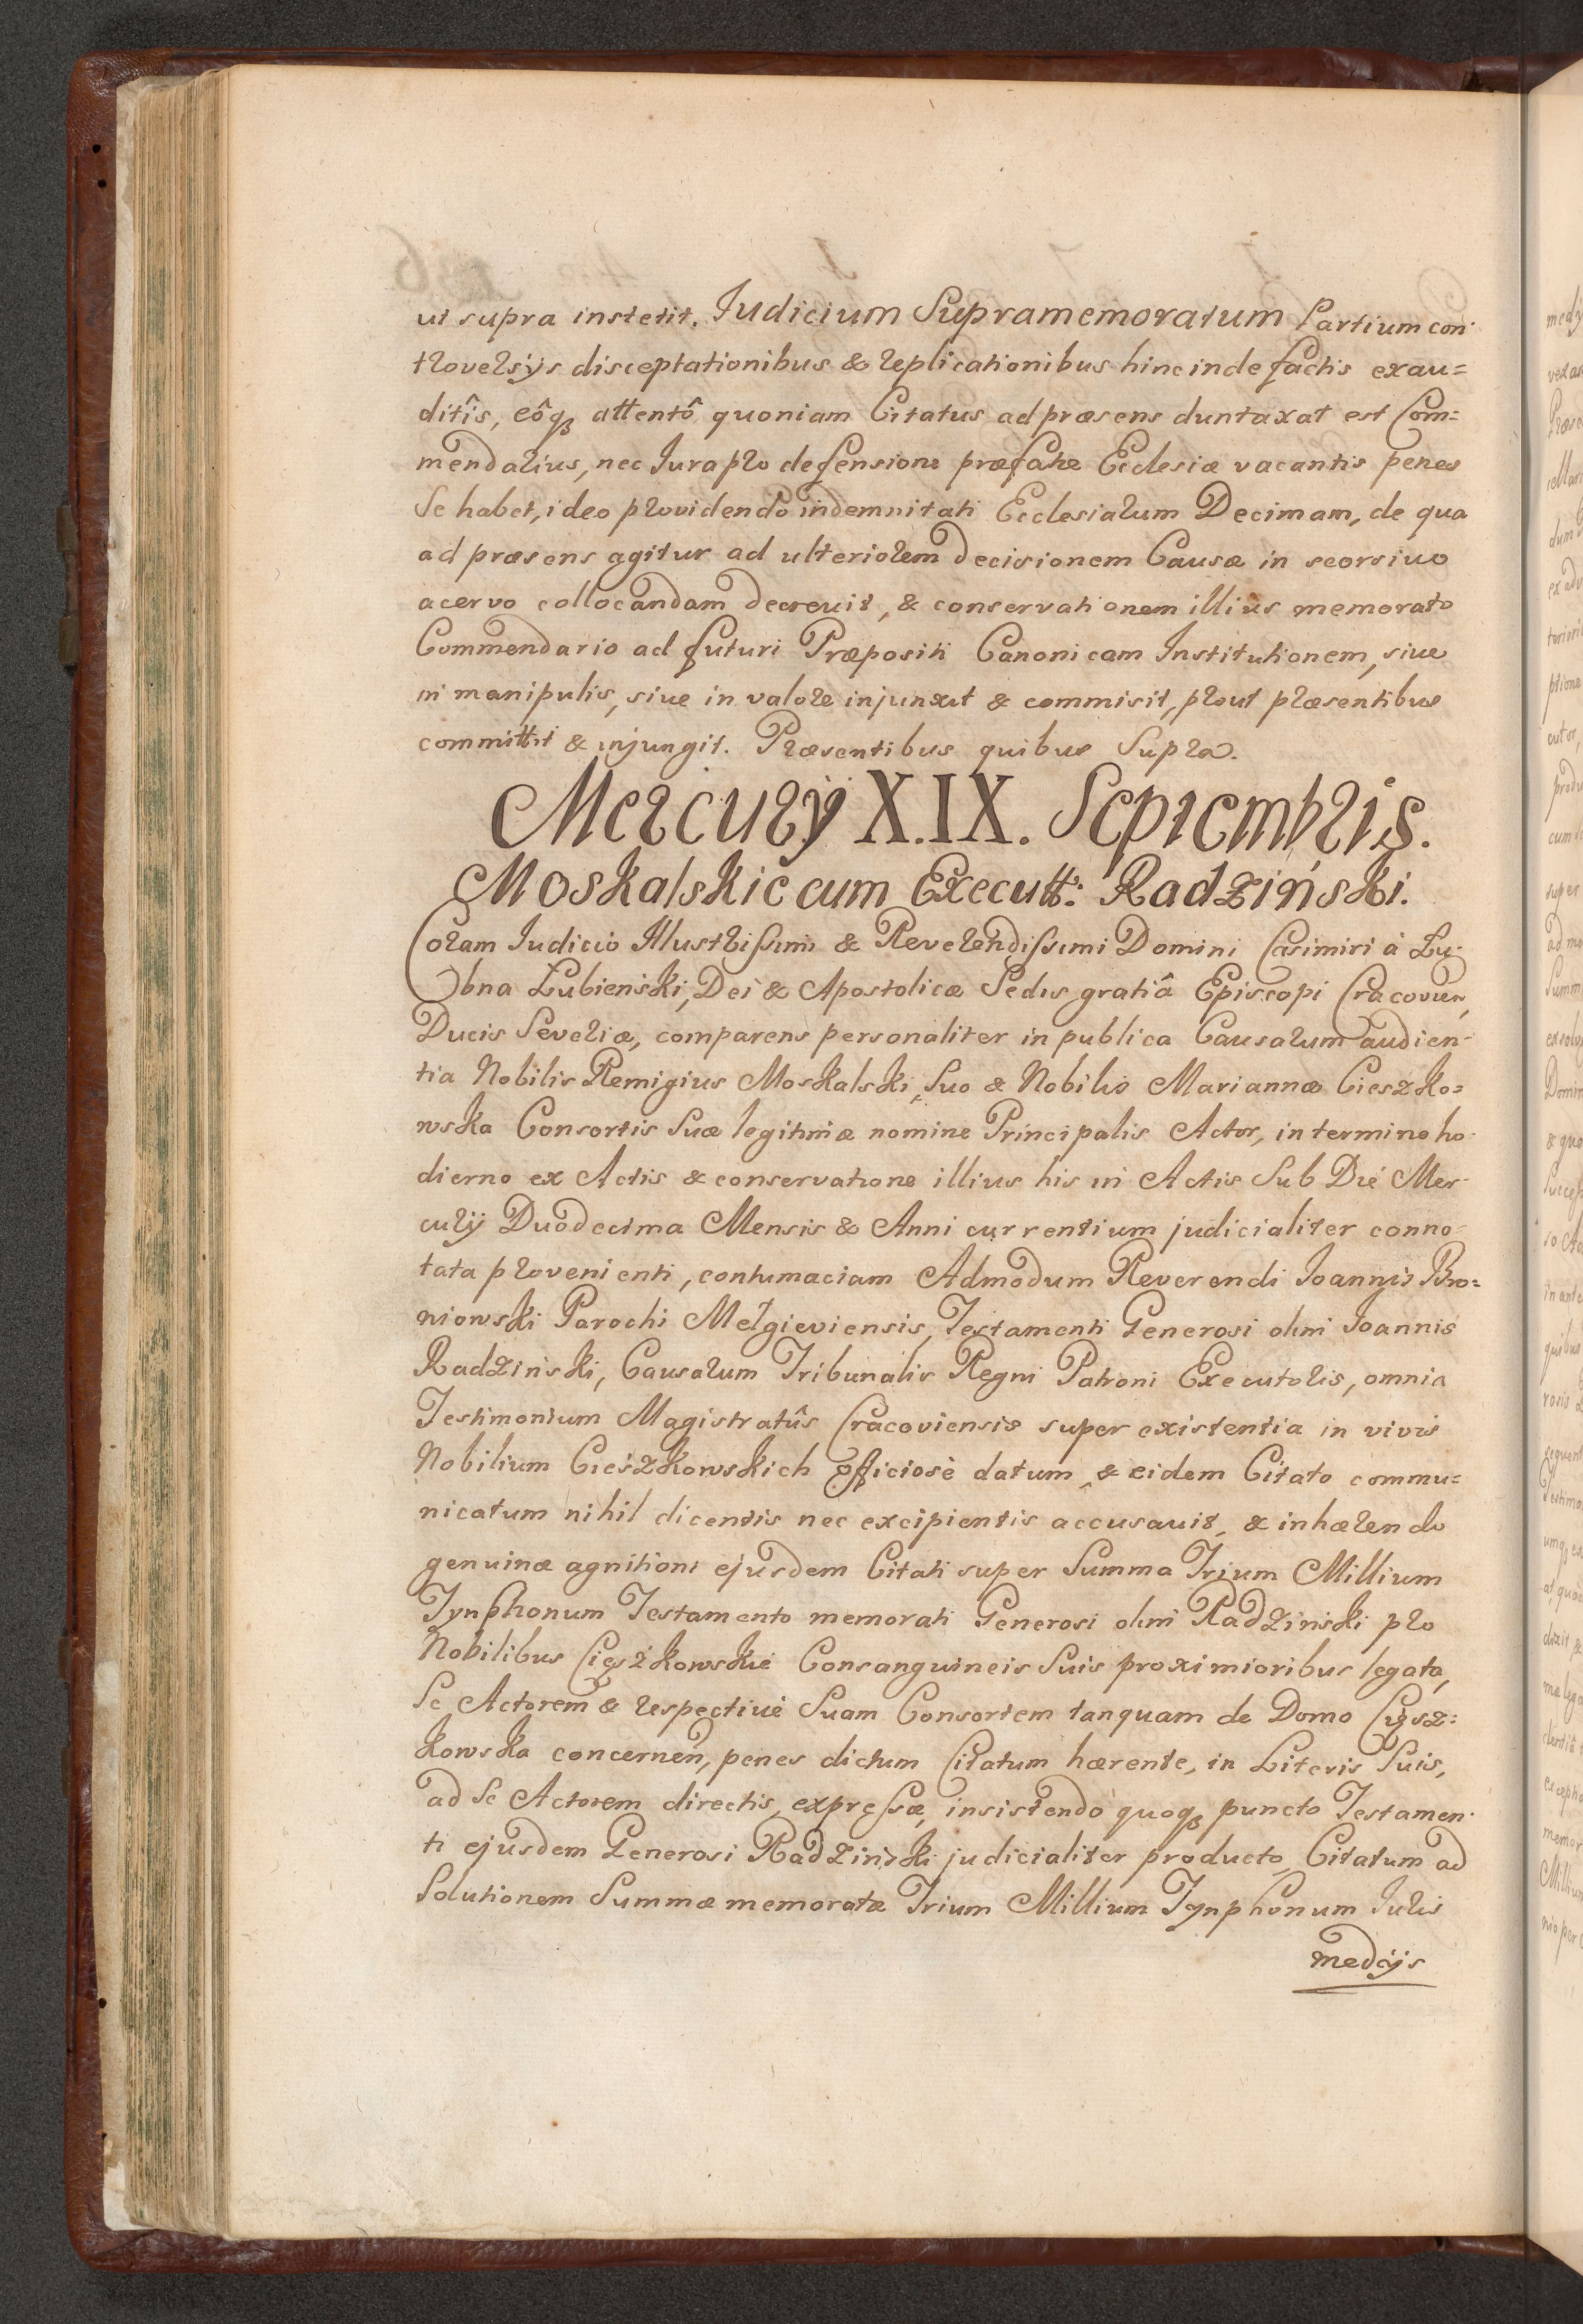 ut supra institit. Judicium Supramemoratum Partium con-
troversÿs disceptationibus & replicationibus hinc inde factis exau=
ditîs, eôq₃ attentô quoniam Citatus ad præsens duntaxat est Com=
mendarius, nec Jura pro defensione præfatæ Ecclesiæ vacantis penes
Se habet, ideo providendo indemnitati Ecclesiarum Decimam, de qua
ad præsens agitur ad ulteriorem decisionem Causæ in seorsivo
acervo collocandam decrevit, & conservationem illius memorato
Commendario ad futuri Præpositi Canonicam Institutionem, sive
in manipulis, sive in valore injunxit & commisit, prout præsentibus
committit & injungit. Præsentibus quibus Supra.
Mercurÿ X.IX. Septembris.
Moskalskie cum Executt: Radziński.
Coram Judicio Illustrissimi & Reverendissimi Domini Casimiri à Lu-
bna Łubieński, Dei & Apostolicæ Sedis gratiâ Episcopi Cracovien,
Ducis Severiæ, comparens personaliter in publica Causarum audien-
tia Nobilis Remigius Moskalski, Suo & Nobilis Mariannæ Cieszko=
wska Consortis Suæ legitimæ nomine Principalis Actor, in termino ho-
dierno ex Actis & conservatione illius his in Actis Sub Die Mer-
curÿ Duodecima Mensis & Anni currentium judicialiter conno-
tata provenienti, contumaciam Admodum Reverendi Joannis Bro=
niowski Parochi Mełgieviensis, Testamenti Generosi olim Joannis
Radzinski, Causarum Tribunalis Regni Patroni Executoris, omnia
Testimonium Magistratûs Cracoviensis super existentia in vivis
Nobilium Cieszkowskich officiosè datum, & eidem Citato commu=
nicatum nihil dicentis nec excipientis accusavit, & inhærendo
genuinæ agnitioni ejusdem Citati super Summa Trium Millium
Tynphonum Testamento memorati Generosi olim Radzinski pro
Nobilibus Cieszkowskie Consanguineis Suis proximioribus legata,
Se Actorem & respectivè Suam Consortem tanquam de Domo Ciesz=
kowska concernen, penes dictum Citatum hærente, in Literis Suis,
ad Se Actorem directis, expressæ, insistendo quoq₃ puncto Testamen-
ti ejusdem Generosi Radzinski judicialiter producto, Citatum ad
Solutionem Summæ memoratæ Trium Millium Tynphonum Juris
medÿs